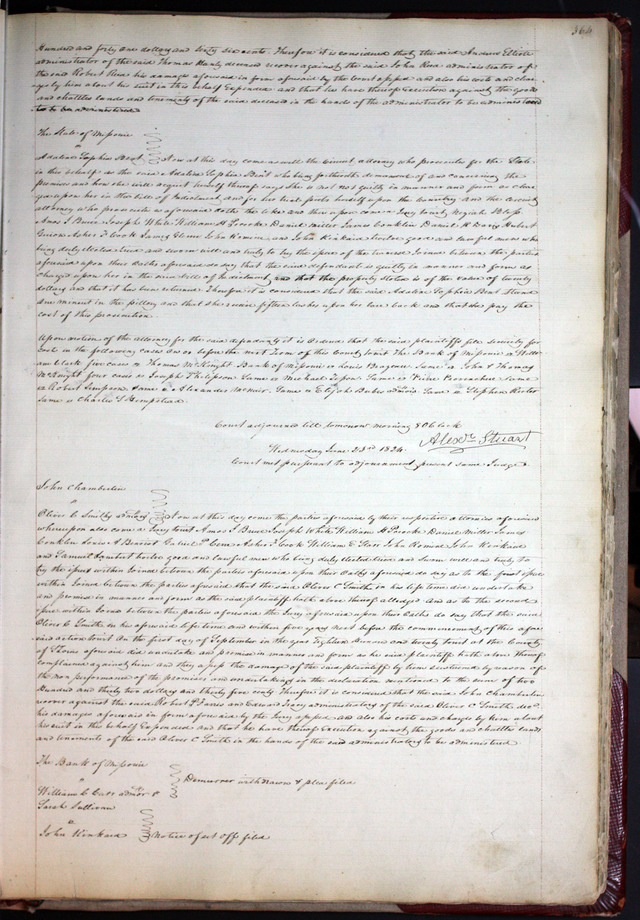 364
Hundred and forty one dollars and sixty six cents. Therefore it is considered that the said Andrew Elliott
administrator of the said Thomas Hanly deceased recover against the said John Rice administrator of
the said Robert his damages aforesaid in form aforesaid by the Court assessed and also his costs and char
ges by him about his suit in this behalf expended and that he have thereof Execution against the goods
and chattles lands and tenements of the said deceased in the hands of the administrator to be administered
to be administered
The State of Missouri
Adaline Sophia Bent Now at this day come as well the Circuit attorney who prosecutes for the State
in this behalf as the said Adaline Sophia Bent who being forthwith demanded of and concerning the
premises and how she will acquit herself thereof says she is not guilty in manner and form as char
ged upon her in this bill of Indictment and for her trial puts herself upon the Country and the Circuit
attorney who prosecutes as aforesaid doth the like and thereupon came a Jury towit
Amos J Bruce Joseph White William H Daniel Miller James Conklin Daniel R Davis Hubert
Guion Asher F Cook John and John Kinkaid twelve good and lawful men who
being duly elected tried and sworn well and truly to try the issue of the traverse Joined between the parties
aforesaid upon their oaths aforesaid do say that the said defendant is guilty in manner and form as
charged upon her in the said bill of Indictment and that the property stolen is of the value of twenty
dollars and that it has been returned. Therefore it is considered that the said Adaline Sophia Bent Stand
one moment in the pillory and that she receive fifteen lashes upon her bare back and that she pay the
cost of this prosecution.
Upon motion of the attorney for the said defendants it is Ordered that the said plaintiffs file security for
Cost in the following cases on or before the next Term of this County towit The Bank of Missouri vs Willi
am Clark five cases vs Thomas McKnight Bank of Missouri vs Louis Same vs John & Thomas
McKnight four cases vs Joseph Philipson Same vs Michael Same vs Same
vs Robert Simpson Same vs Alexander McNair Same vs Elijah Same vs Stephen Rector
Same vs Charles S Hempstead.
Court adjourned till tomorrow morning 8 OClock
Alexr. Stuart
Wednesday June 23rd 1824.
Court met pursuant to adjournment present same Judge
John Chamberlin
vs
Oliver C Smiths admtrs Now at this day come the parties aforesaid by their respective attornies aforesaid
whereupon also came a Jury towit Amos J Bruce Joseph White William H Daniel Miller James
Conklin Asher F Cook William John John Kinkaid
and Samuel twelve good and lawful men who being duly elected tried and Sworn well and truly to
try the issues within Joined between the parties aforesaid upon their Oaths aforesaid do say as to the first issue
within Joined between the parties aforesaid that the said Oliver C Smith in his life time did undertake
and promise in manner and form as the said plaintiff hath above thereof alleged and as to the second
issue within Joined between the parties aforesaid the Jury aforesaid upon their Oaths do say that the said
Oliver C Smith in his aforesaid life time and within five years next before the commencing of this afore
said action towit On the first day of September in the year Eighteen Hundred and twenty at the County
of St Louis aforesaid did undertake and promise in manner and form as he said plaintiff hath above thereof
complained against him and they assess the damage of the said plaintiff by him Sustained by reason of
the non performance of the promises and undertakings in the declaration mentioned to the sum of two
Hundred and thirty two dollars and thirty five cents Therefore it is considered that the said John Chamberlin
recover against the said Robert P Farris and Edward administrators of the said Oliver C Smith decd
his damages aforesaid in form aforesaid by the Jury assessed and also his costs and charges by him about
his suit in this behalf Expended and that he have thereof Execution against the goods and chattles lands
and tenements of the said Oliver C Smith in the hands of the said administrators to be administered
The Bank of Missouri
vs
Demurrer withdrawn & plea filed
William C Carr admtr &c
Sarah Sullivan
vs
John Kinkaid Notice of set off filed